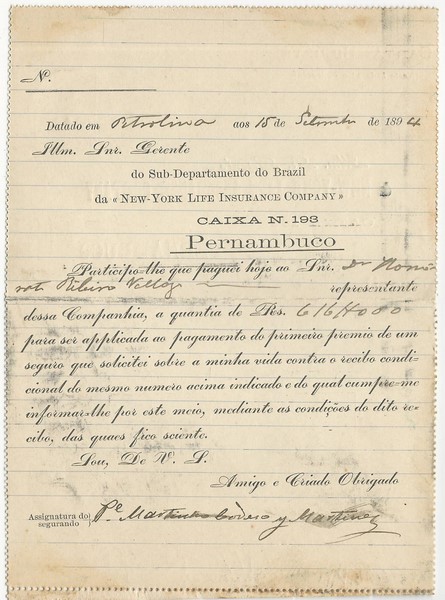 N.
Datado em Petrolina aos 15 de Setembro de 1894
Illm. Snr. Gerente
do Sub-Departamento do Brazil
da « NEW-YORK LIFE INSURANCE COMPANY »
CAIXA N. 193
Pernambuco
Participo-lhe que paguei hojo ao Snr. Dr
Ribeiro representante
dessa Companhia, a quantia de Rs. 616$000
para ser applicada ao pagamento do primeiro premio de um
seguro que solicitei sobre a minha vida contra o recibo condi-
cional do mesmo numero acima indicado e do qual cumpre-me
informar-lhe por este meio, mediante as condições do dito re-
cibo, das quaes fico sciente.
Sou, De V. S.
Amigo e Criado Obrigado
Assignatura do segurando } Pe. y Martinez